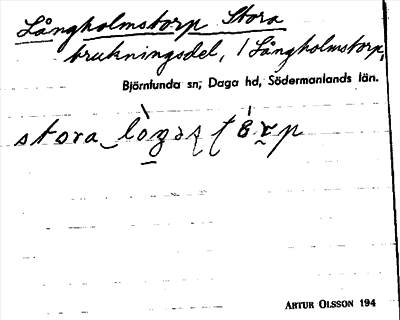 Långholmstorp Stora
brukningsdel, / Långholmstorp,
Björnlunda sn; Daga hd, Södermanlands län.
stora
ARTUR OLSSON 194